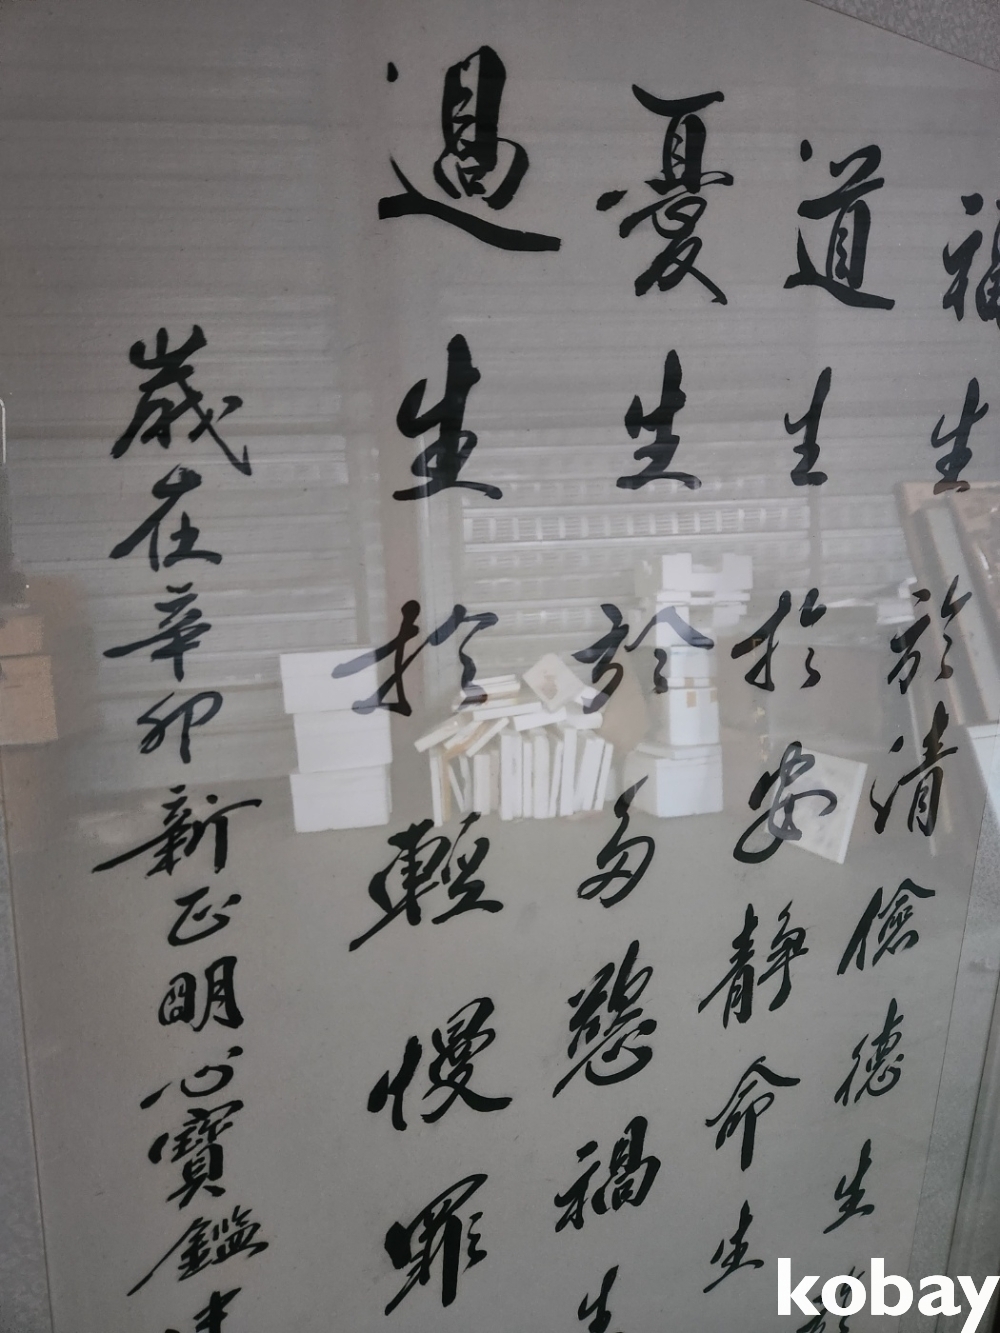 福生於清儉德生於
道生於安静命生
憂生於多慾禍生
過生於輕慢罪
歲在辛卯新正明心寶鑑
kobay